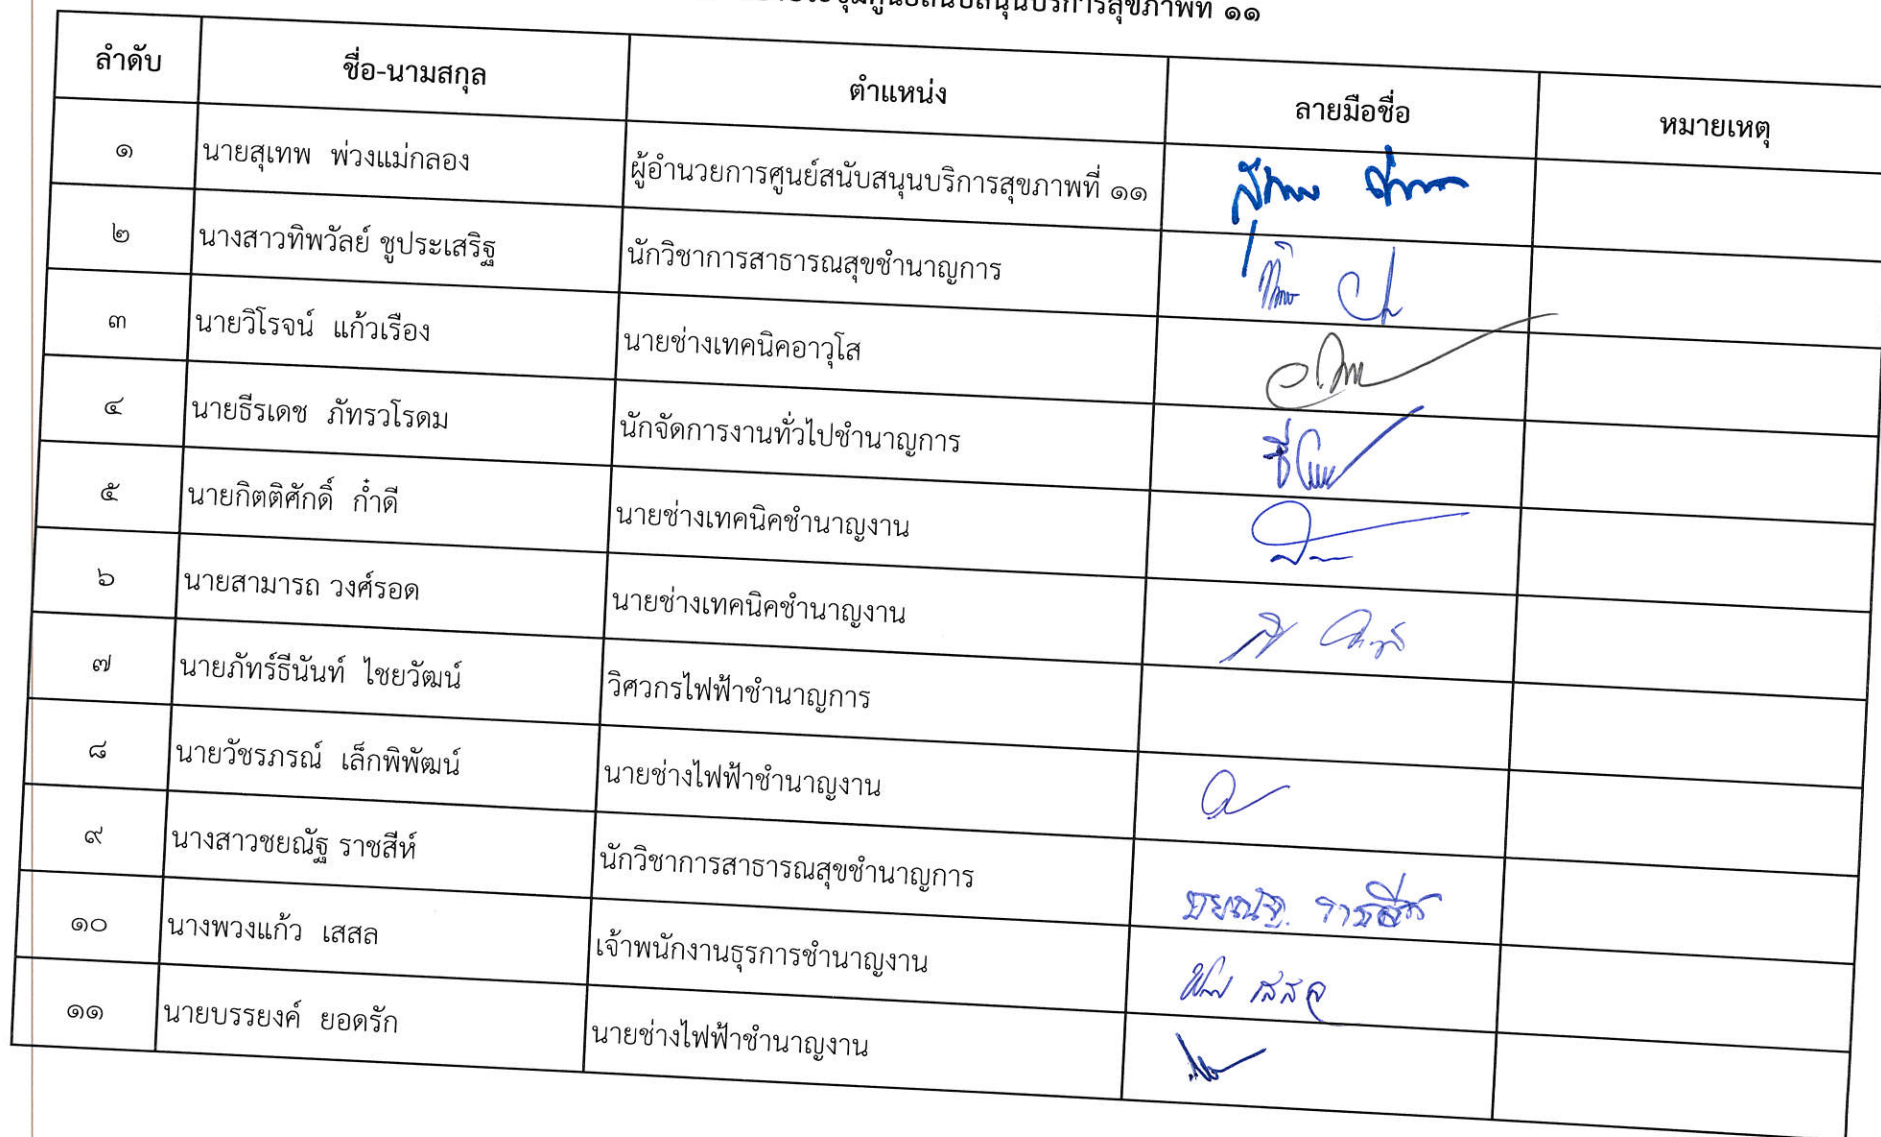 ศูนย์สนับสนุนบริการสุขภาพที่ ๑๑
ลำดับ ชื่อ-นามสกุล ตำแหน่ง ลายมือชื่อ หมายเหตุ
๑ นายสุเทพ พ่วงแม่กลอง ผู้อำนวยการศูนย์สนับสนุนบริการสุขภาพที่ ๑๑
๒ นางสาวทิพวัลย์ ชูประเสริฐ นักวิชาการสาธารณสุขชำนาญการ
๓ นายวิโรจน์ แก้วเรือง นายช่างเทคนิคอาวุโส
๔ นายธีรเดช ภัทรวโรดม นักจัดการงานทั่วไปชำนาญการ
๕ นายกิตติศักดิ์ ก๋ำดี นายช่างเทคนิคชำนาญงาน
๖ นายสามารถ วงศ์รอด นายช่างเทคนิคชำนาญงาน
๗ นายภัทร์ธีนันท์ ไชยวัฒน์ วิศวกรไฟฟ้าชำนาญการ
๘ นายวัชรภรณ์ เล็กพิพัฒน์ นายช่างไฟฟ้าชำนาญงาน
๙ นางสาวชยณัฐ ราชสีห์ นักวิชาการสาธารณสุขชำนาญการ ชยณัฐ ราชสีห์
๑๐ นางพวงแก้ว เสสล เจ้าพนักงานธุรการชำนาญงาน เสสล
๑๑ นายบรรยงค์ ยอดรัก นายช่างไฟฟ้าชำนาญงาน